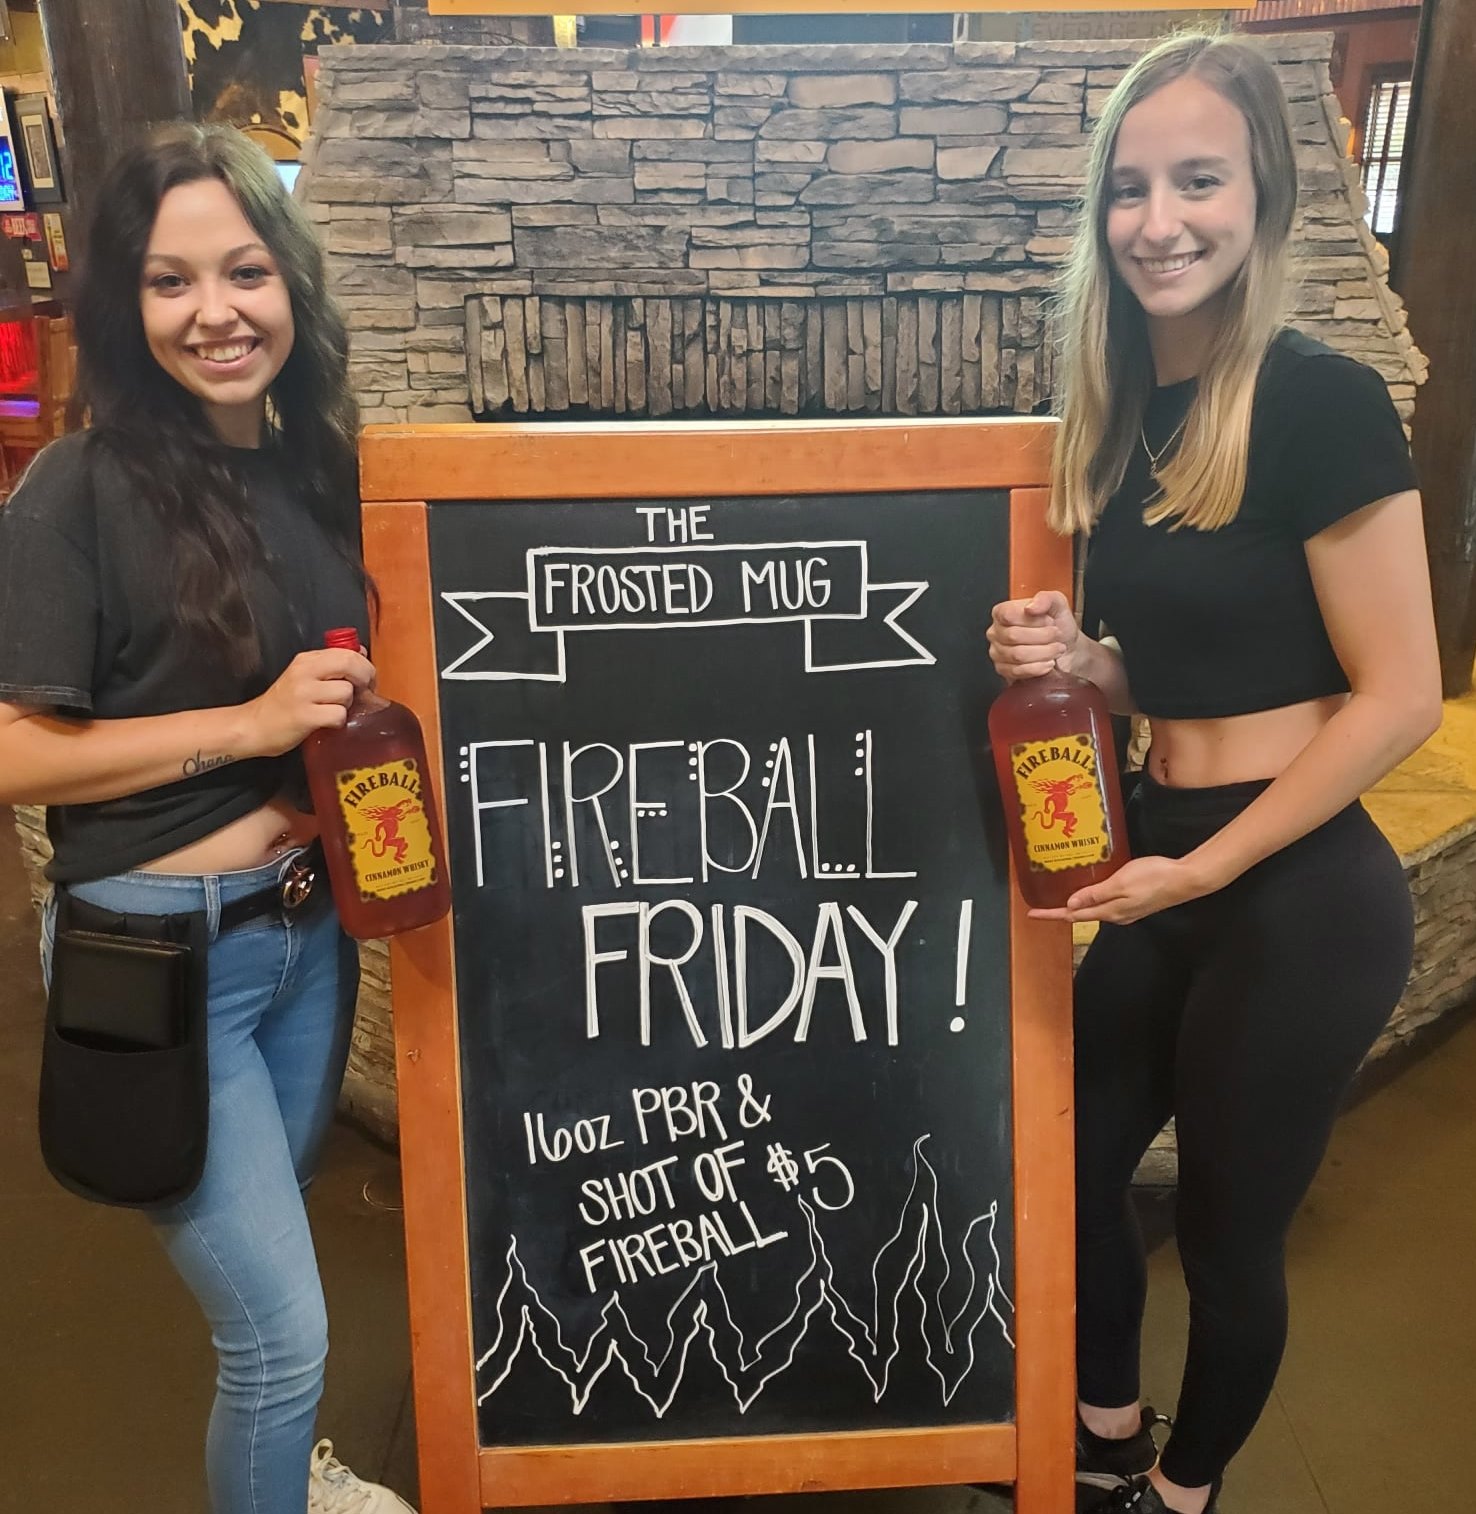 THE
FROSTED MUG
FIREBALL
FRIDAY!
16oz PBR &
SHOT OF $5
FIREBALL
FIREBALL
CINNAMON WHISKY
FIREBALL
CINNAMON WHISKY
Ohana
12